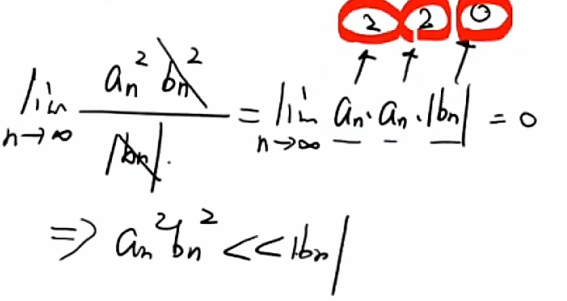 2 2 0
lim n→∞ an² bn² / |bn| = lim n→∞ an · an · |bn| = 0
⇒ an² bn² << |bn|